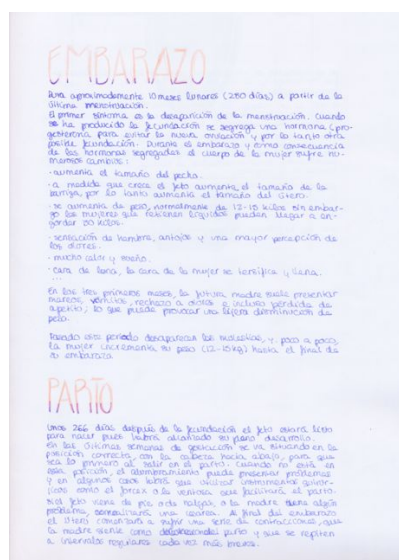 EMBARAZO
Dura aproximadamente 10 meses lunares (280 días) a partir de la
última menstruación.
El primer síntoma es la desaparición de la menstruación. Cuando
se ha producido la fecundación se segrega una hormona (pro-
gesterona) para evitar la nueva ovulación y por lo tanto otra
posible fecundación. Durante el embarazo y como consecuencia
de las hormonas segregadas el cuerpo de la mujer sufre nu-
merosos cambios:
- aumenta el tamaño del pecho.
- a medida que crece el feto aumenta el tamaño de la
barriga, por lo tanto aumenta el tamaño del útero.
- se aumenta de peso, normalmente de 12-15 kilos sin embar-
go las mujeres que retienen líquidos pueden llegar a en-
gordar 30 kilos.
- sensación de hambre, antojos y una mayor percepción de
los olores.
- mucho calor y sueño.
- cara de luna, la cara de la mujer se y llena.
...
En los tres primeros meses, la futura madre suele presentar
mareos, vómitos, rechazo a olores e incluso pérdida de
apetito, lo que puede provocar una ligera disminución de
peso.
Pasado este periodo desaparecen las molestias, y poco a poco,
la mujer incrementa su peso (12-15kg) hasta el final de
su embarazo.
PARTO
Unos 266 días después de la fecundación el feto estará listo
para nacer pues habrá alcanzado su pleno desarrollo.
En las últimas semanas de gestación se va situando en la
posición correcta, con la cabeza hacia abajo, para que
sea lo primero al salir en el parto. Cuando no está en
esta posición, el alumbramiento puede presentar problemas
y en algunos casos habrá que utilizar instrumental quirúr-
gico como el forcex o la ventosa que facilitará el parto.
Si el feto viene de pie o de nalgas, o la madre tiene algún
problema, se una cesárea. Al final del embarazo
el útero comenzará a sufrir una serie de contracciones, que
la madre siente como parto y que se repiten
a intervalos regulares cada vez más breves.